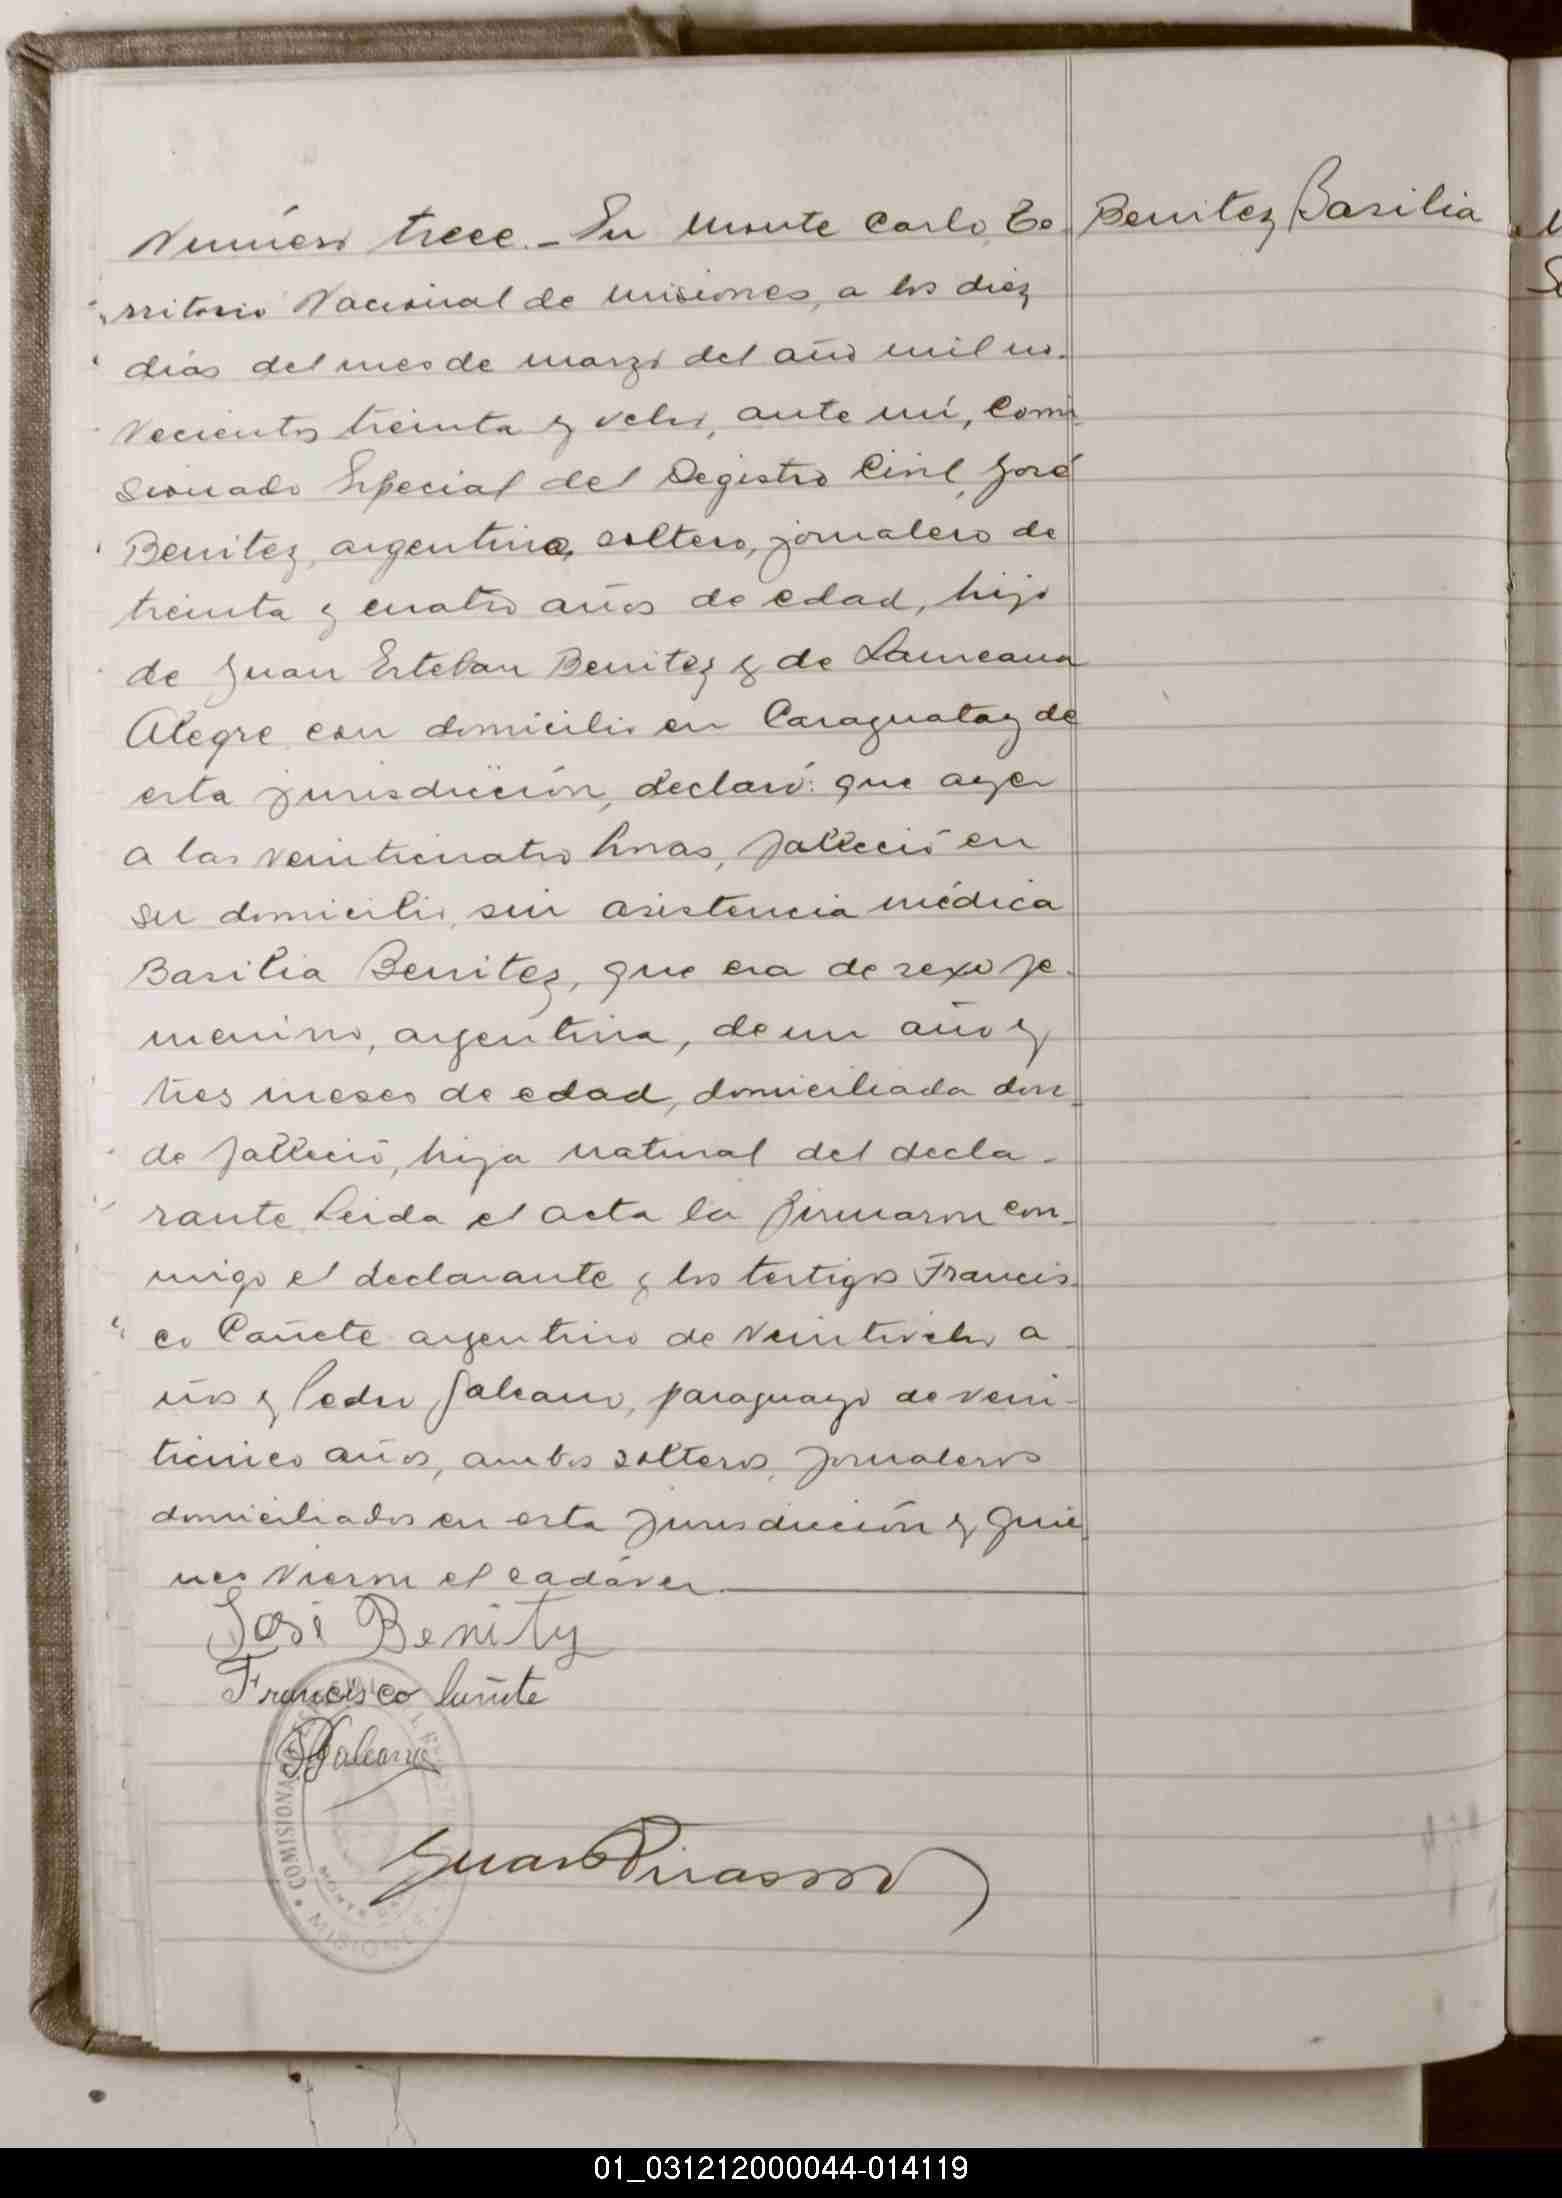 Número trece.- En Monte Carlo, Te-
rritorio Nacional de Misiones, a los diez
días del mes de marzo del año mil no-
vecientos treinta y ocho, ante mí, Comi-
sionado Especial del Registro Civil, José
Benitez, argentino, soltero, jornalero de
treinta y cuatro años de edad, hijo
de Juan Esteban Benitez y de Laureana
Alegre con domicilio en Caraguatay de
esta jurisdicción, declaró: que ayer
a las veinticuatro horas, falleció en
su domicilio, sin asistencia médica
Basilia Benitez, que era de sexo fe-
menino, argentina, de un año y
tres meses de edad, domiciliada don-
de falleció, hija natural del decla-
rante. Leida el acta la firmaron con-
migo el declarante y los testigos Francis-
co Cañete argentino de veintiocho a-
ños y Pedro Galeano, paraguayo de vein-
ticinco años, ambos solteros, jornaleros
domiciliados en esta jurisdicción y quie-
nes vieron el cadáver.
José Benitez
Francisco Cañete
PGaleano
Benitez, Basilia
COMISIONA
MISIONES
01_031212000044-014119